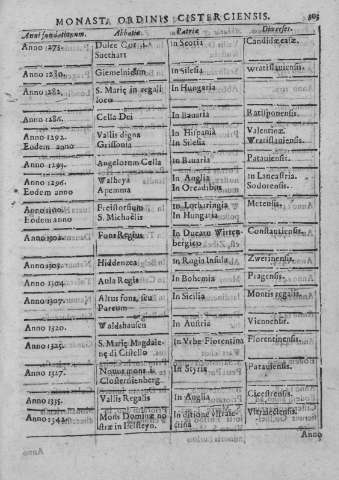 MONASTA ORDINIS CISTERCIENSIS. 305
Anni fundationum. Abbatiæ Patriæ Diœceses.
Anno 1275. Dulce Cor In Scotia Candilicasæ.
Suethart
Anno 1280. Giemelnicum In Silesia Wratislauiensis.
Anno 1282. S. Marię in regali loco In Hungaria
Anno 1286. Cella Dei In Bauaria Ratisponensis.
Anno 1292. Vallis digna In Hispania Valentinæ.
Eodem anno Grissonia In Silesia Wratislauiensis.
Anno 1295. Angelorum Cella In Bauaria Patauiensis.
Anno 1296. Walbeya In Anglia In Lancastria.
Eodem anno Apemna In Orcadibus Sodorensis.
Anno 1300. Freistorfium In Lotharingia Metensis.
Eodem anno S. Michaelis In Hungaria
Anno 1303. Fons Regius In Ducatu Wirtenbergico Constantiensis.
Anno 1303. Hiddenzea In Rugia Insula Zwerinensis.
Anno 1304. Aula Regia In Bohemia Pragensis.
Anno 1307. Altus fons, seu Parcum In Sicilia Montis regalis.
Anno 1320. Waldshausen In Austria Viennensis.
Anno 1325. S. Marię Magdalenę di Cistello In Vrbe Florentina Florentinensis.
Anno 1327. Nouus mons In Styria Patauiensis.
Anno 1335. Vallis Regalis In Anglia Cicestrensis.
Anno 1342. Mons Dominę nostræ in In ditione
Anno